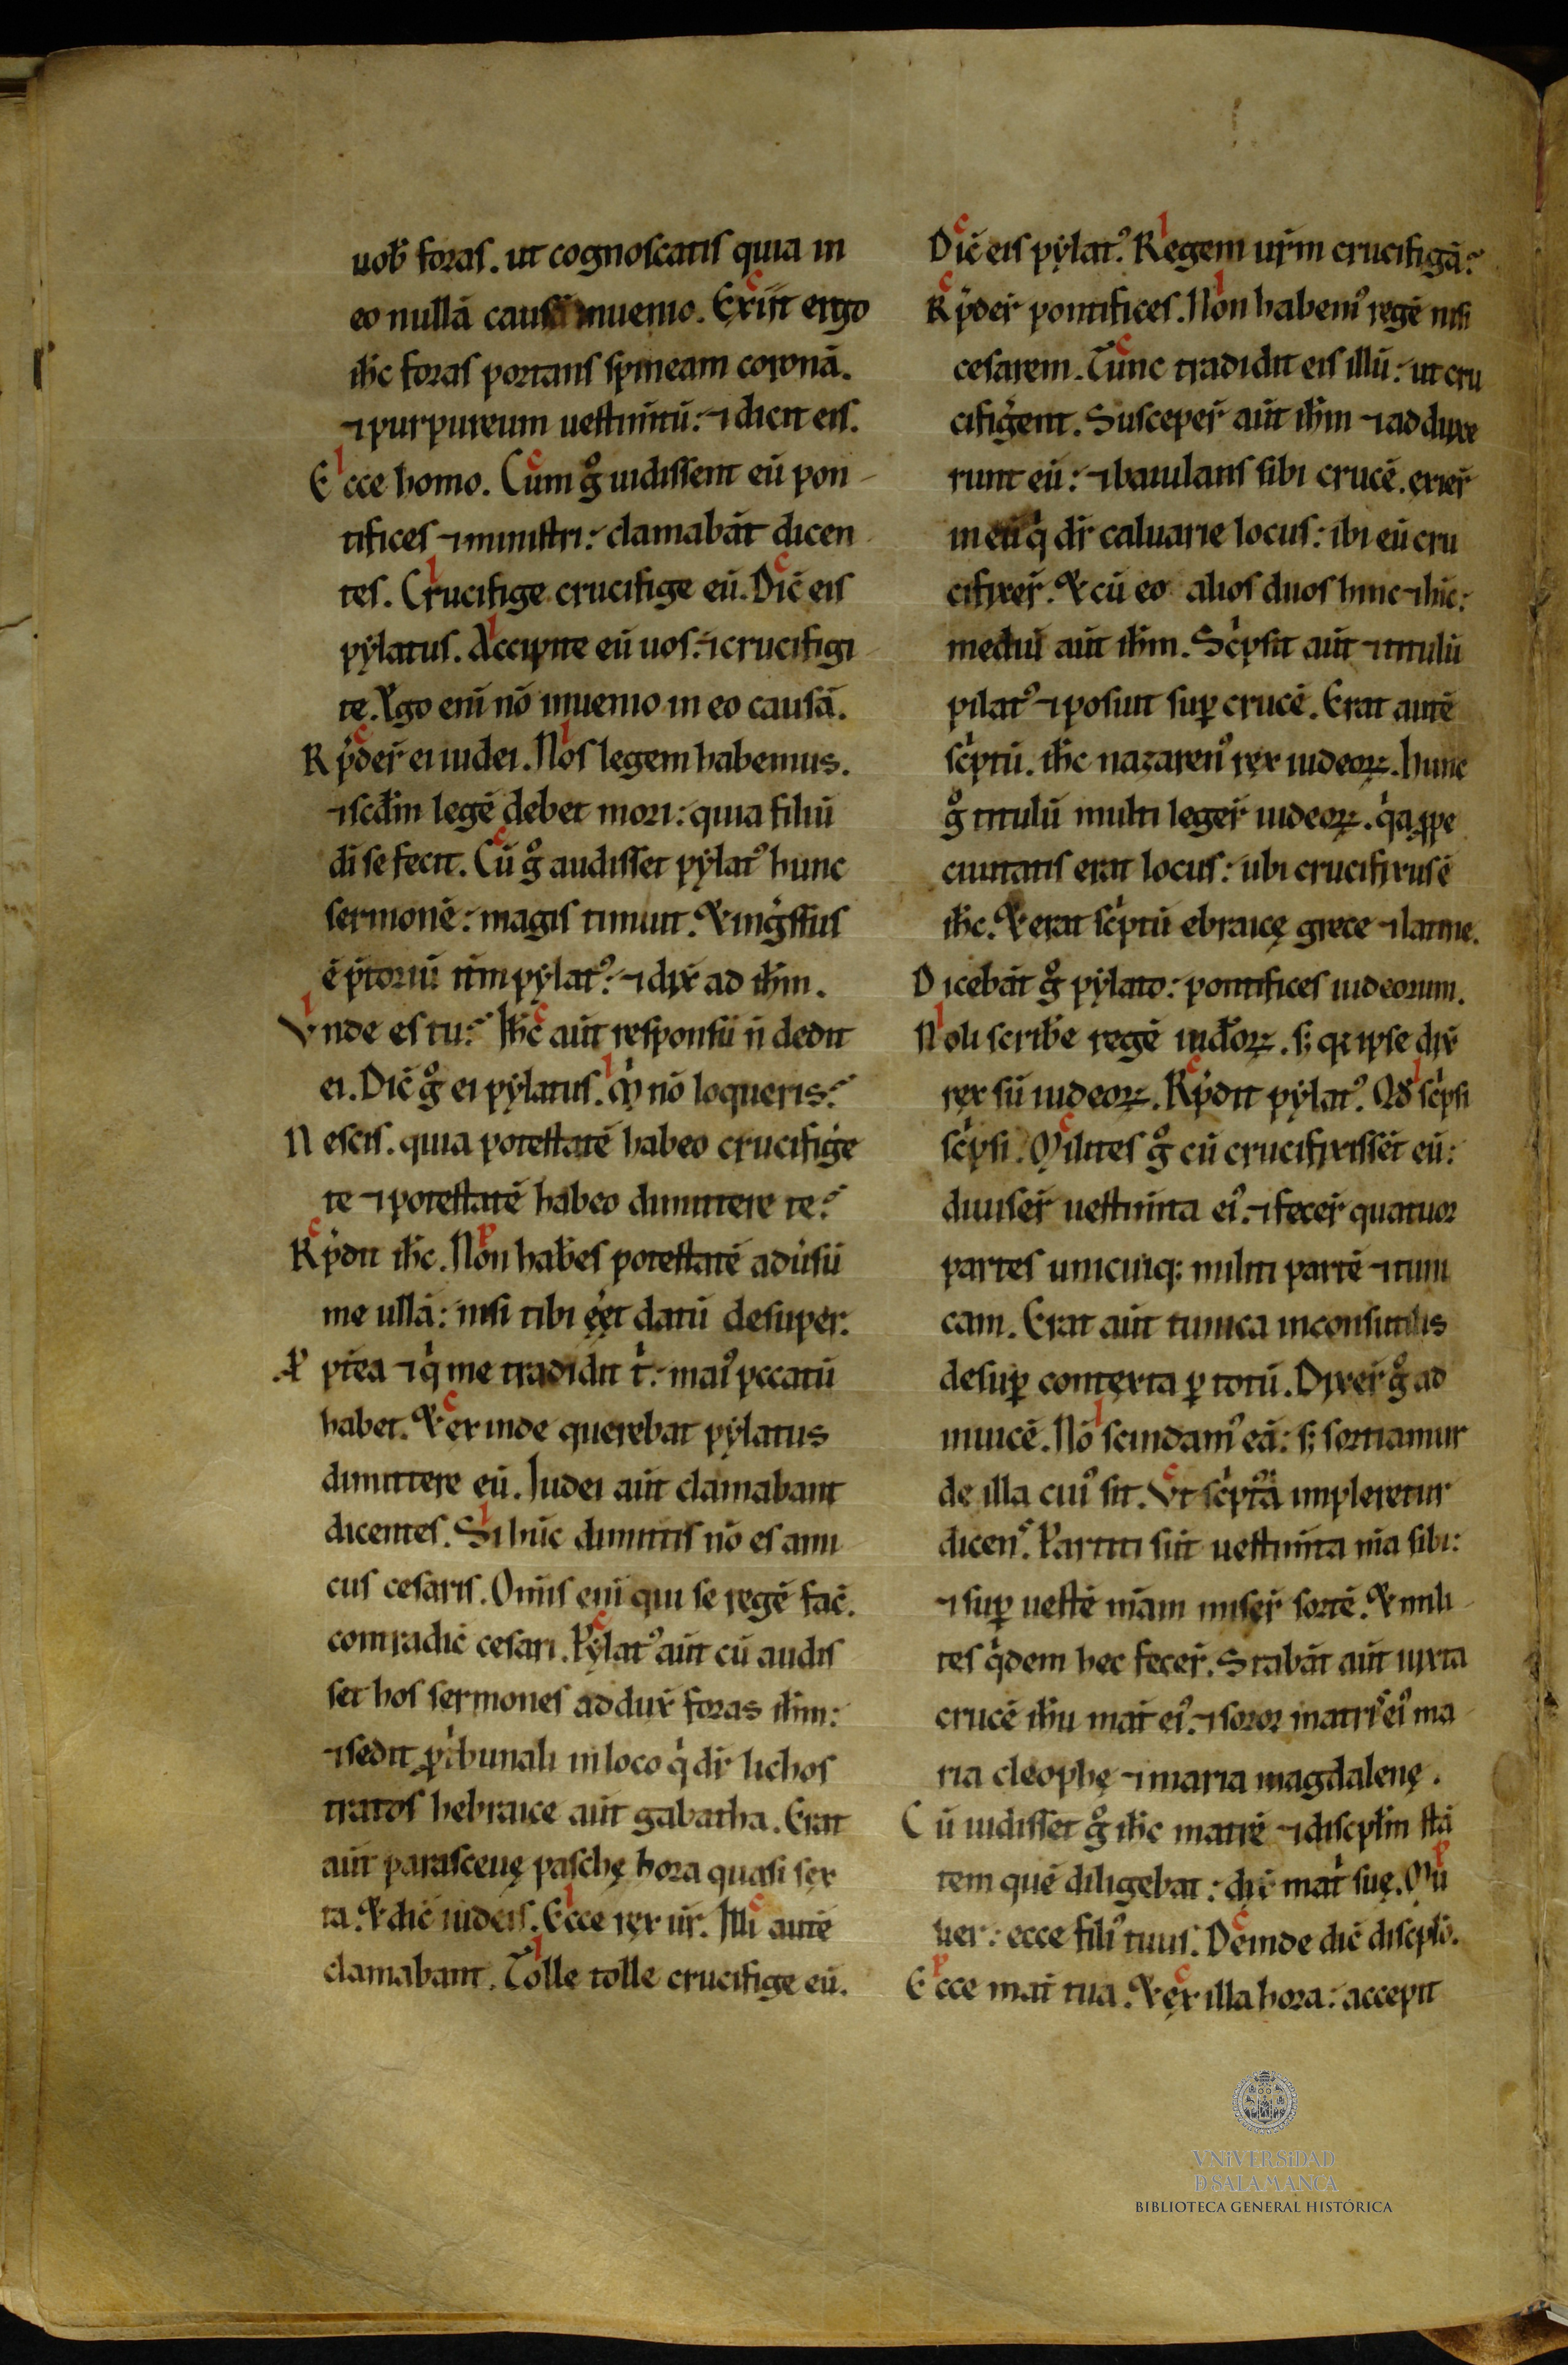 uob̄ foras. ut cognoscatis quia in
eo nullā causā inuenio. Exiit ergo
ih̄c foras portans spineam coronā.
⁊ purpureum uestim̄tū: ⁊ dicit eis.
Ecce homo. Cum g̊ uidissent eū pon-
tifices ⁊ ministri: clamabāt dicen-
tes. Crucifige crucifige eū. Dic̄ eis
pẏlatus. Accipite eū uos: ⁊ crucifigi-
te. Ego eni nō inuenio in eo causā.
Rp̄der̄ ei iudei. Nos legem habemus.
⁊ scd̄m legē debet mori: quia filiū
dī se fecit. Cū g̊ audisset pẏlatꝰ hunc
sermonē: magis timuit. Et ingͥssus
ē p̄toriū itm̄ pẏlatꝰ: ⁊ dix̄ ad ih̄m.
Vnde es tu? Ih̄c aūt responsū n̄ dedit
ei. Dic̄ g̊ ei pẏlatus. M̄ nō loqueris?
Nescis. quia potestatē habeo crucifigͤe
te ⁊ potestatē habeo dimittere te?
Rp̄dit ih̄c. Non hab̄es potestatē adūsū
me ullā: nisi tibi eēt datū desuper.
Pptēa ⁊ qͥ me tradidit tͥ: maiꝰ pccatū
habet. Et ex inde querebat pẏlatus
dimittere eū. Iudei aūt clamabant
dicentes. Si hūc dimittis nō es ami-
cus cesaris. Om̄is eni qui se regē fac̄.
contradic̄ cesari. Pẏlatꝰ aūt cū audis
set hos sermones addux̄ foras ih̄m:
⁊ sedit ꝓ tͥbunali in loco qͥ dr̄ lichos
tratos hebraice aūt gabatha. Erat
aūt parasceuę paschę hora quasi sex
ta. Et dic̄ iudeis. Ecce rex ūr. Illi autē
clamabant. Tolle tolle crucifige eū.
Dic̄ eis pẏlatꝰ. Regem ur̄m crucifigā?
Rp̄der̄ pontifices. Non habemꝰ regē nisi
cesarem. Tunc tradidit eis illū: ut cru
cifigͤent. Susceper̄ aūt ih̄m ⁊ adduxe
runt eū: ⁊ baiulans sibi crucē. exier̄
in eū qͥ dr̄ caluarie locus: ibi eū cru
cifixer̄. Et cū eo alios duos hinc ⁊ hīc:
mediū aūt ih̄m. Scͥpsit aūt ⁊ titulū
pilatꝰ ⁊ posuit suꝑ crucē. Erat autē
scͥptū. ih̄c nazarenꝰ rex iudeoꝝ. hunc
g̊ titulū multi leger̄ iudeoꝝ. qͥa ꝓpe
ciuitatis erat locus: ubi crucifixus ē
ih̄c. Et erat scͥptū ebraicę grece ⁊ latine.
Dicebāt g̊ pẏlato: pontifices iudeorum.
Noli scrib̄e regē iud̄oꝝ. s; qꝛ ipse dix̄
rex sū iudeoꝝ. Rp̄dit pẏlatꝰ. Qd̄ scͥpsi
scͥpsi. Milites g̊ cū crucifixissēt eū:
diuiser̄ uestim̄ta eiꝰ: ⁊ fecer̄ quatuor
partes unicuiqꝫ militi partē ⁊ tuni
cam. Erat aūt tunica inconsutilis
desuꝑ contexta ꝑ totū. Dixer̄ g̊ ad
inuicē. Nō scindamꝰ eā: s; sortiamur
de illa cuiꝰ sit. Vt scͥptᷓa impleretur
dicenˢ. Partiti sūt uestim̄ta m̄a sibi:
⁊ suꝑ uestē m̄am miser̄ sortē. Et mili-
tes qͥdem hec fecer̄. Stabāt aūt iuxta
crucē ih̄u mat̄ eiꝰ: ⁊ soror matriˢ eiꝰ ma-
ria cleophę ⁊ maria magdalenę.
Cū uidisset g̊ ih̄c matrē ⁊ discpłm stā
tem quē diligebat: dix̄ matͥ suę. Mu
lier: ecce filiꝰ tuus. Deinde dic̄ discpło.
Ecce mat̄ tua. Et ex illa hora: accepit
VNIVERSIDAD
D SALAMANCA
BIBLIOTECA GENERAL HISTÓRICA